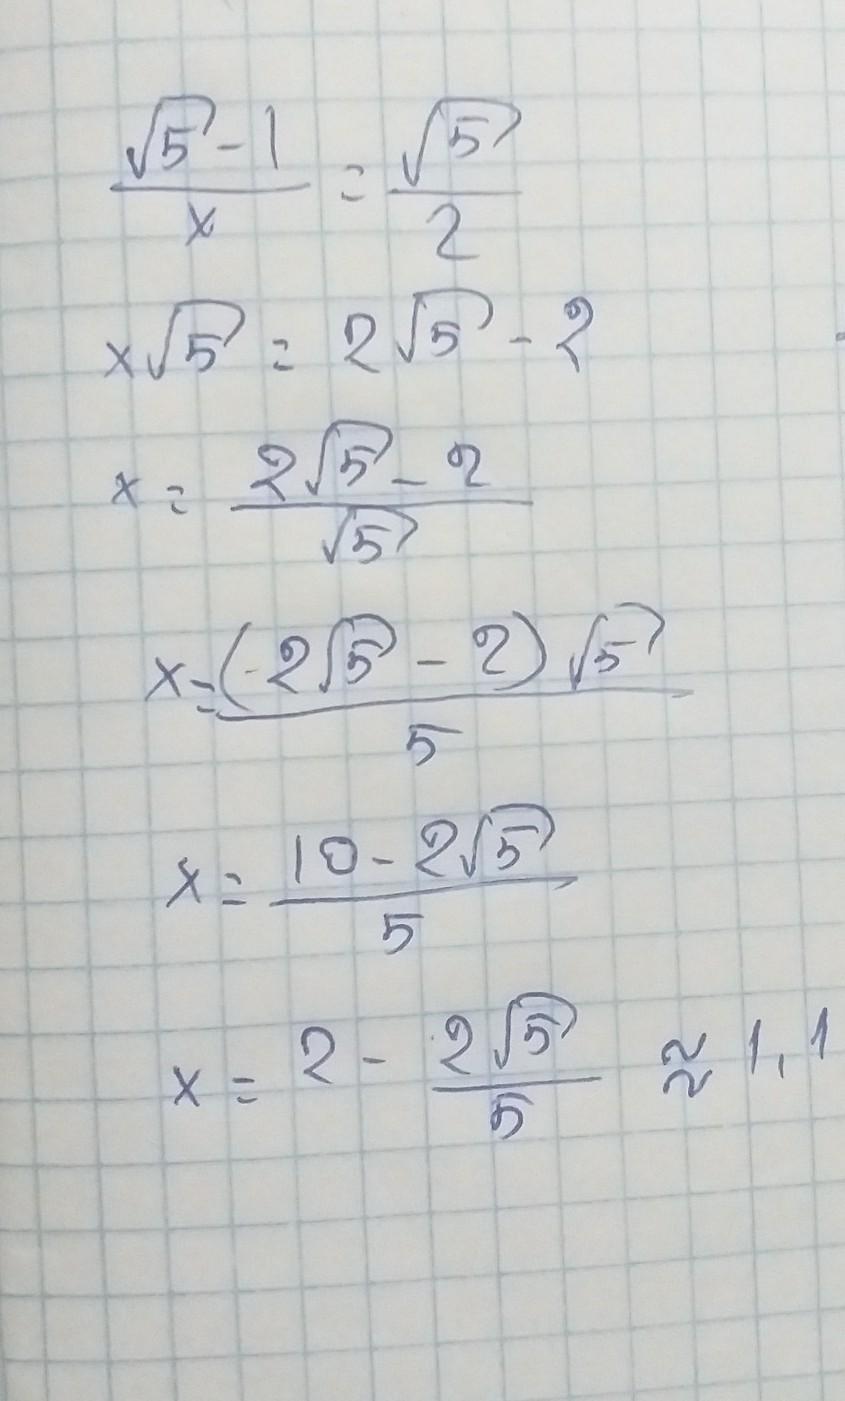 (√5 - 1)/x = √5/2
x√5 = 2√5 - 2
x = (2√5 - 2)/√5
x = (2√5 - 2)√5/5
x = (10 - 2√5)/5
x = 2 - 2√5/5 ≈ 1,1